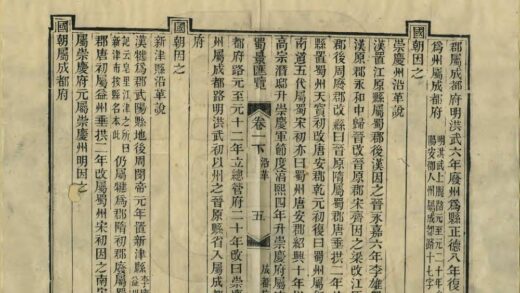 郡屬成都府明洪武六年廢州爲縣正德八年復
爲州屬成都府 明洪武上脫路元至元二十年
陽安 入州屬成都路十七字
國朝因之
崇慶州沿革說
漢置江原縣屬蜀郡後漢因之晉永嘉六年李雄
漢原郡永和中歸晉改晉原郡宋齊因之梁改江原
郡後周廢郡改縣曰晉原隋屬蜀郡唐垂拱二年
縣置蜀州天寶初改唐安郡乾元初復曰蜀州屬
南道五代屬蜀宋初亦曰蜀州唐安郡紹興十年
高宗潛邸升崇慶軍節度淳熙四年升崇慶府屬
蜀景匯覽 卷一下 沿革 五 成都
都府路元至元十二年立總管府二十年改曰崇
州屬成都路明洪武初以州之晉原縣省入屬成
府
國朝因之
新津縣沿革說
漢犍爲郡武陽縣地後周閔帝元年置新津縣
記云皂里江津之所曰
新津市按縣名本此 仍屬犍爲郡隋初郡廢屬
郡唐初屬益州垂拱二年改屬蜀州宋初因之南
屬崇慶府元屬崇慶州明因之
國朝因之